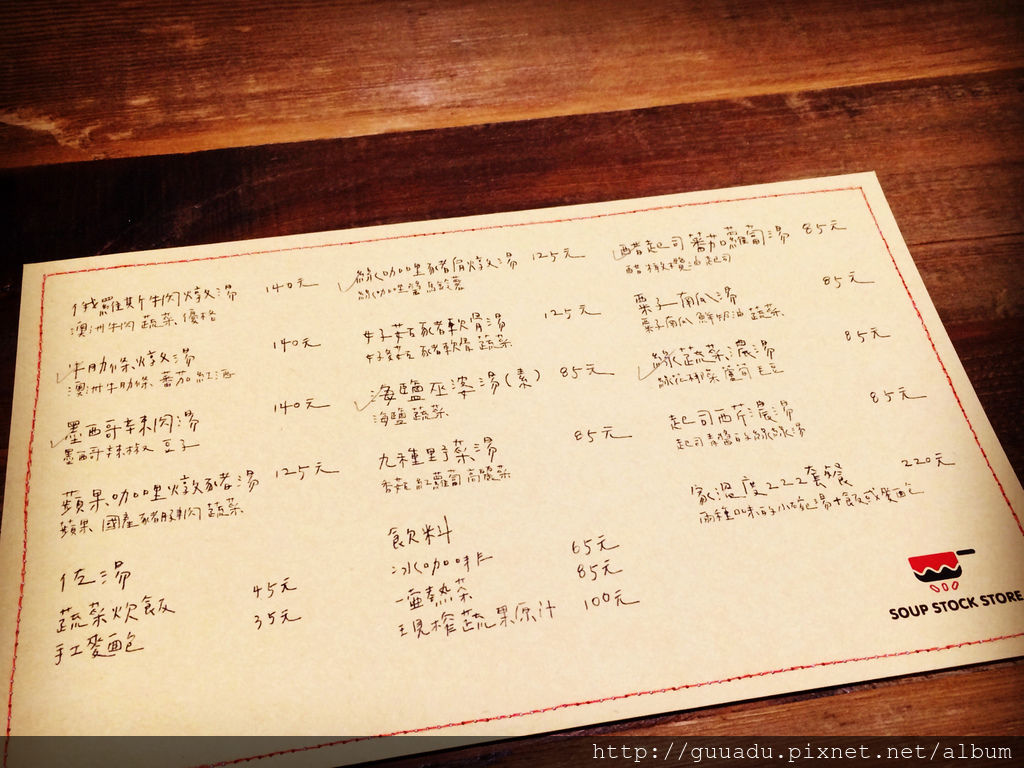 俄羅斯牛肉燉湯 140元
澳洲牛肉 蔬菜 優格
牛肋條燉湯 140元
澳洲牛肋條 蕃茄 紅酒
墨西哥辣肉湯 140元
墨西哥辣椒 豆子
蘋果咖哩燉豬湯 125元
蘋果 國產豬腱肉 蔬菜
佐湯
蔬菜炊飯 45元
手工麥麵包 35元
綠咖哩豬肩燉湯 125元
綠咖哩醬 馬鈴薯
好菇豬軟骨湯 125元
好菇 豬軟骨 蔬菜
海鹽巫婆湯(素) 85元
海鹽 蔬菜
九種野菜湯 85元
香菇 紅蘿蔔 高麗菜
飲料
冰咖啡 65元
一壺熱茶 85元
現榨蔬果原汁 100元
醋起司蕃茄蘿蔔湯 85元
醋 橄欖油 起司
栗子南瓜湯 85元
栗子南瓜 鮮奶油 蔬菜
綠蔬菜濃湯 85元
綠花椰菜 蘆筍 毛豆
起司西芹濃湯 85元
家溫度222套餐 220元
兩種口味的小碗湯+飯或麵包
SOUP STOCK STORE
http://guuadu.pixnet.net/album